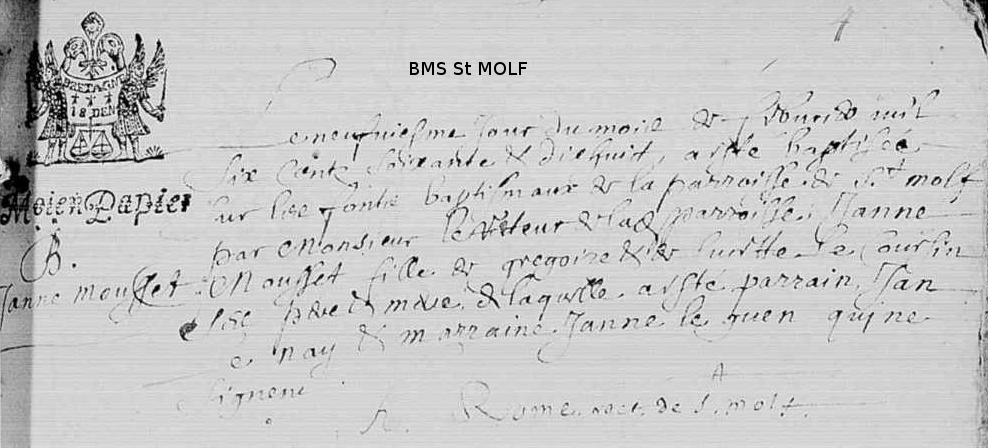 4
BMS St MOLF
BRETAGN
18 DEN
Moien Papier
B.
Janne Mousset
Le neufuiesme Jour du mois de feburier mil
six cents soixante & dixhuit, a esté baptisée
sur les fontz baptismaux de la parroisse de St molf
par Monsieur le Recteur de lad parroisse, Janne
Mousset fille de gregoire & de
pere & mere & laquelle a esté parrain Jan
nay & marraine Janne le guen qui ne
signent
R. Rome rect. de S. molf.